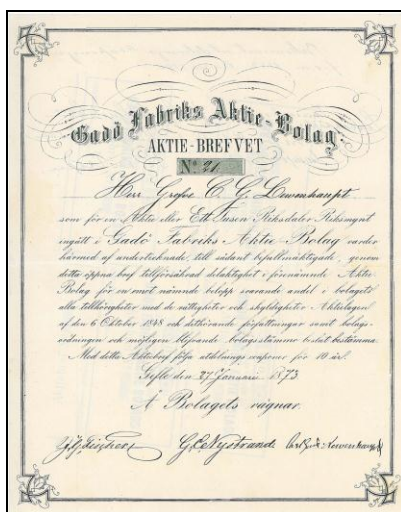 Gadö Fabriks Aktie-Bolag.
AKTIE-BREFVET
No 21.
Herr Grefve C. G. Lewenhaupt
som för en Aktie eller Ett Tusen Riksdaler Riksmynt
ingått i Gadö Fabriks-Aktie-Bolag varder
härmed af undertecknade, till sådant befullmäktigade, genom
detta öppna bref tillförsäkrad delaktighet i förenämnde Aktie
Bolag för en emot nämnde belopp svarande andel i bolagets
alla tillhörigheter med de rättigheter och skyldigheter Aktielagen
af den 6 Oktober 1848 och dithörande författningar samt bolags-
ordningen och möjligen blifvande bolagsstämmobeslut bestämma.
Med detta Aktiebref följa utdelnings couponer för 10 år.
Gefle den 27 Januari 1873.
Å Bolagets vägnar.
G. E. Nystrand.